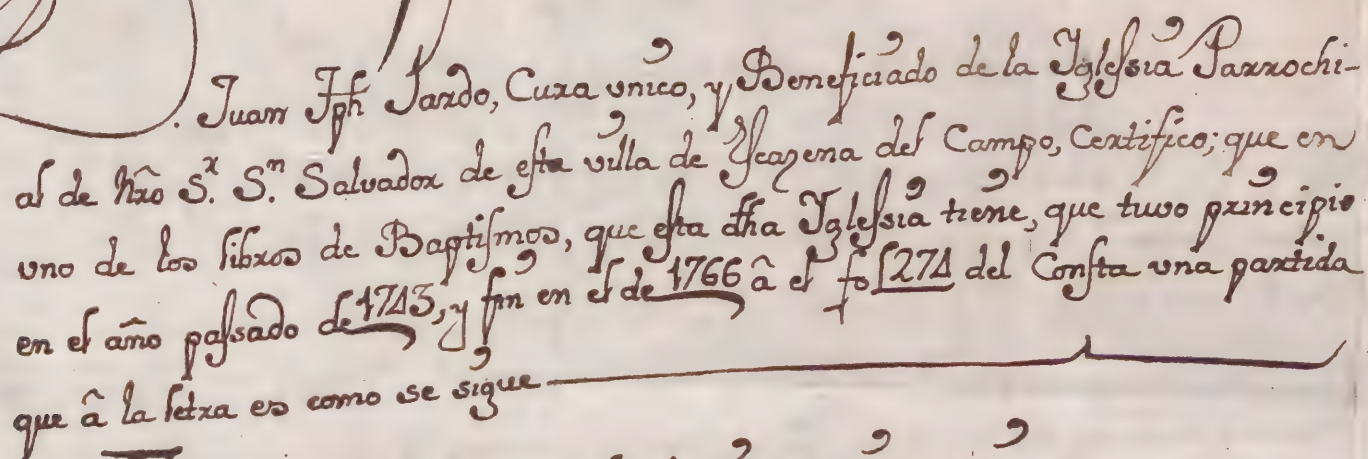 Juan Jph Pardo, Cura vnico, y Beneficiado de la Iglessia Parrochi-
al de Nrô S.r S.n Salvador de esta villa de Escazena del Campo, Certifico; que en
vno de los libros de Baptismos, que esta dha Iglessia tiene, que tuvo principio
en el año passado de 1743, y fin en el de 1766 â el fo 274 del Consta vna partida
que â la letra es como se sigue